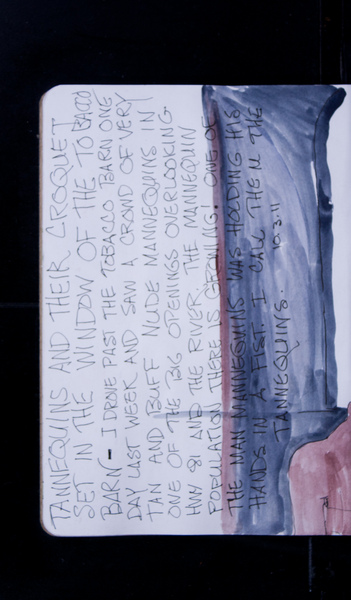 TANNEQUINS AND THEIR CROQUET
SET IN THE WINDOW OF THE TOBACCO
BARN - I DROVE PAST THE TOBACCO BARN ONE
DAY LAST WEEK AND SAW A CROWD OF VERY
TAN AND BUFF NUDE MANNEQUINS IN
ONE OF THE BIG OPENINGS OVERLOOKING
HWY 81 AND THE RIVER. THE MANNEQUIN
POPULATION THERE IS GROWING! ONE OF
THE MAN MANNEQUINS WAS HOLDING HIS
HANDS IN A FIST. I CALL THEM THE
TANNEQUINS. 10.3.11